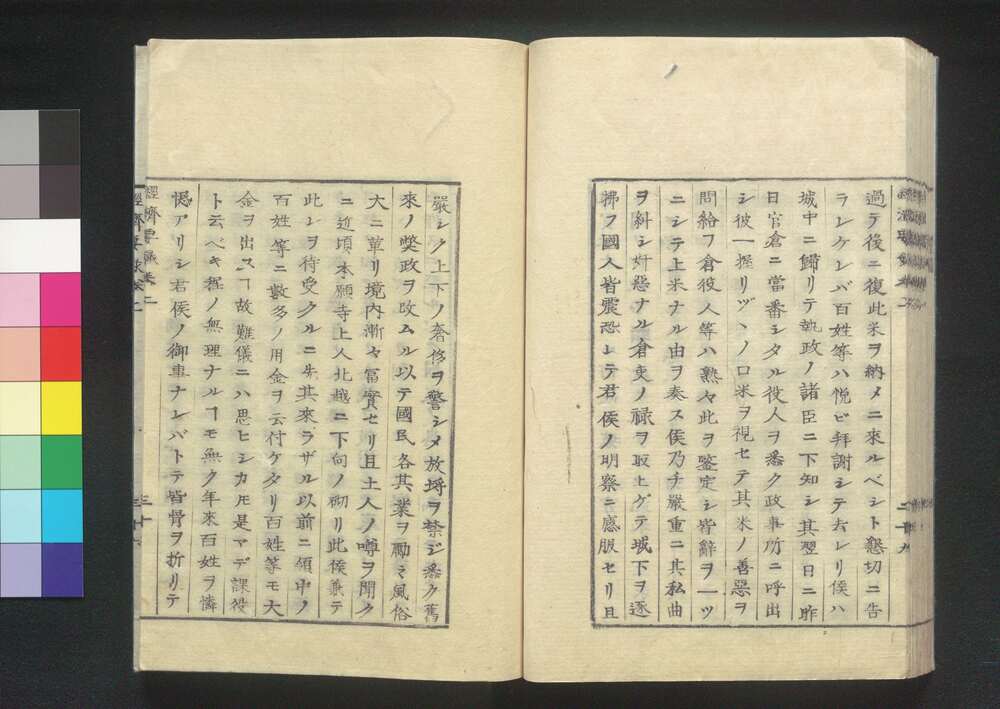 過テ後ニ復此米ヲ納メニ來ルベシト懇切ニ告
ラレケレバ百姓等ハ悦ビ拜謝シテ去レリ侯ハ
城中ニ歸リテ執政ノ諸臣ニ下知シ其翌日ニ昨
日官倉ニ當番シタル役人ヲ悉ク政事所ニ呼出
シ彼一握リヅヽノ口米ヲ視セテ其米ノ善惡ヲ
問給フ倉役人等ハ熟々此ヲ鑒定シ皆辭ヲ一ツ
ニシテ上米ナル由ヲ奏ス侯乃チ嚴重ニ其私曲
ヲ糾シ奸惡ナル倉吏ノ禄ヲ取上ゲテ城下ヲ逐
拂フ國人皆震恐レテ君侯ノ明察ニ感服セリ且
嚴シク上下ノ奢侈ヲ警シメ放埓ヲ禁ジ悉ク舊
來ノ獘政ヲ改ムル以テ國民各其業ヲ勵ミ風俗
大ニ革リ境内漸々富實セリ且土人ノ噂ヲ聞ク
ニ近頃本願寺上人北越ニ下向ノ砌リ此侯兼テ
此レヲ待受クルニ先其來ラザル以前ニ領中ノ
百姓等ニ數多ノ用金ヲ云付ケタリ百姓等モ大
金ヲ出スヿ故難儀ニハ思ヒシカ𪜈是マデ課役
ト云ベキ程ノ無理ナルヿモ無ク年來百姓ヲ憐
愍アリシ君侯ノ御事ナレバトテ皆骨ヲ折リテ
經濟要錄卷二